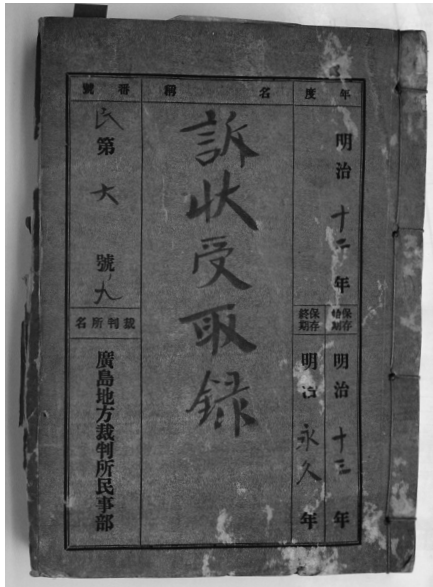 年度
明治十二年
保存始期
明治十三年
保存終期
明治永久年
名稱
訴状受取録
番號
民第大號ノ九
裁判所名
廣島地方裁判所民事部